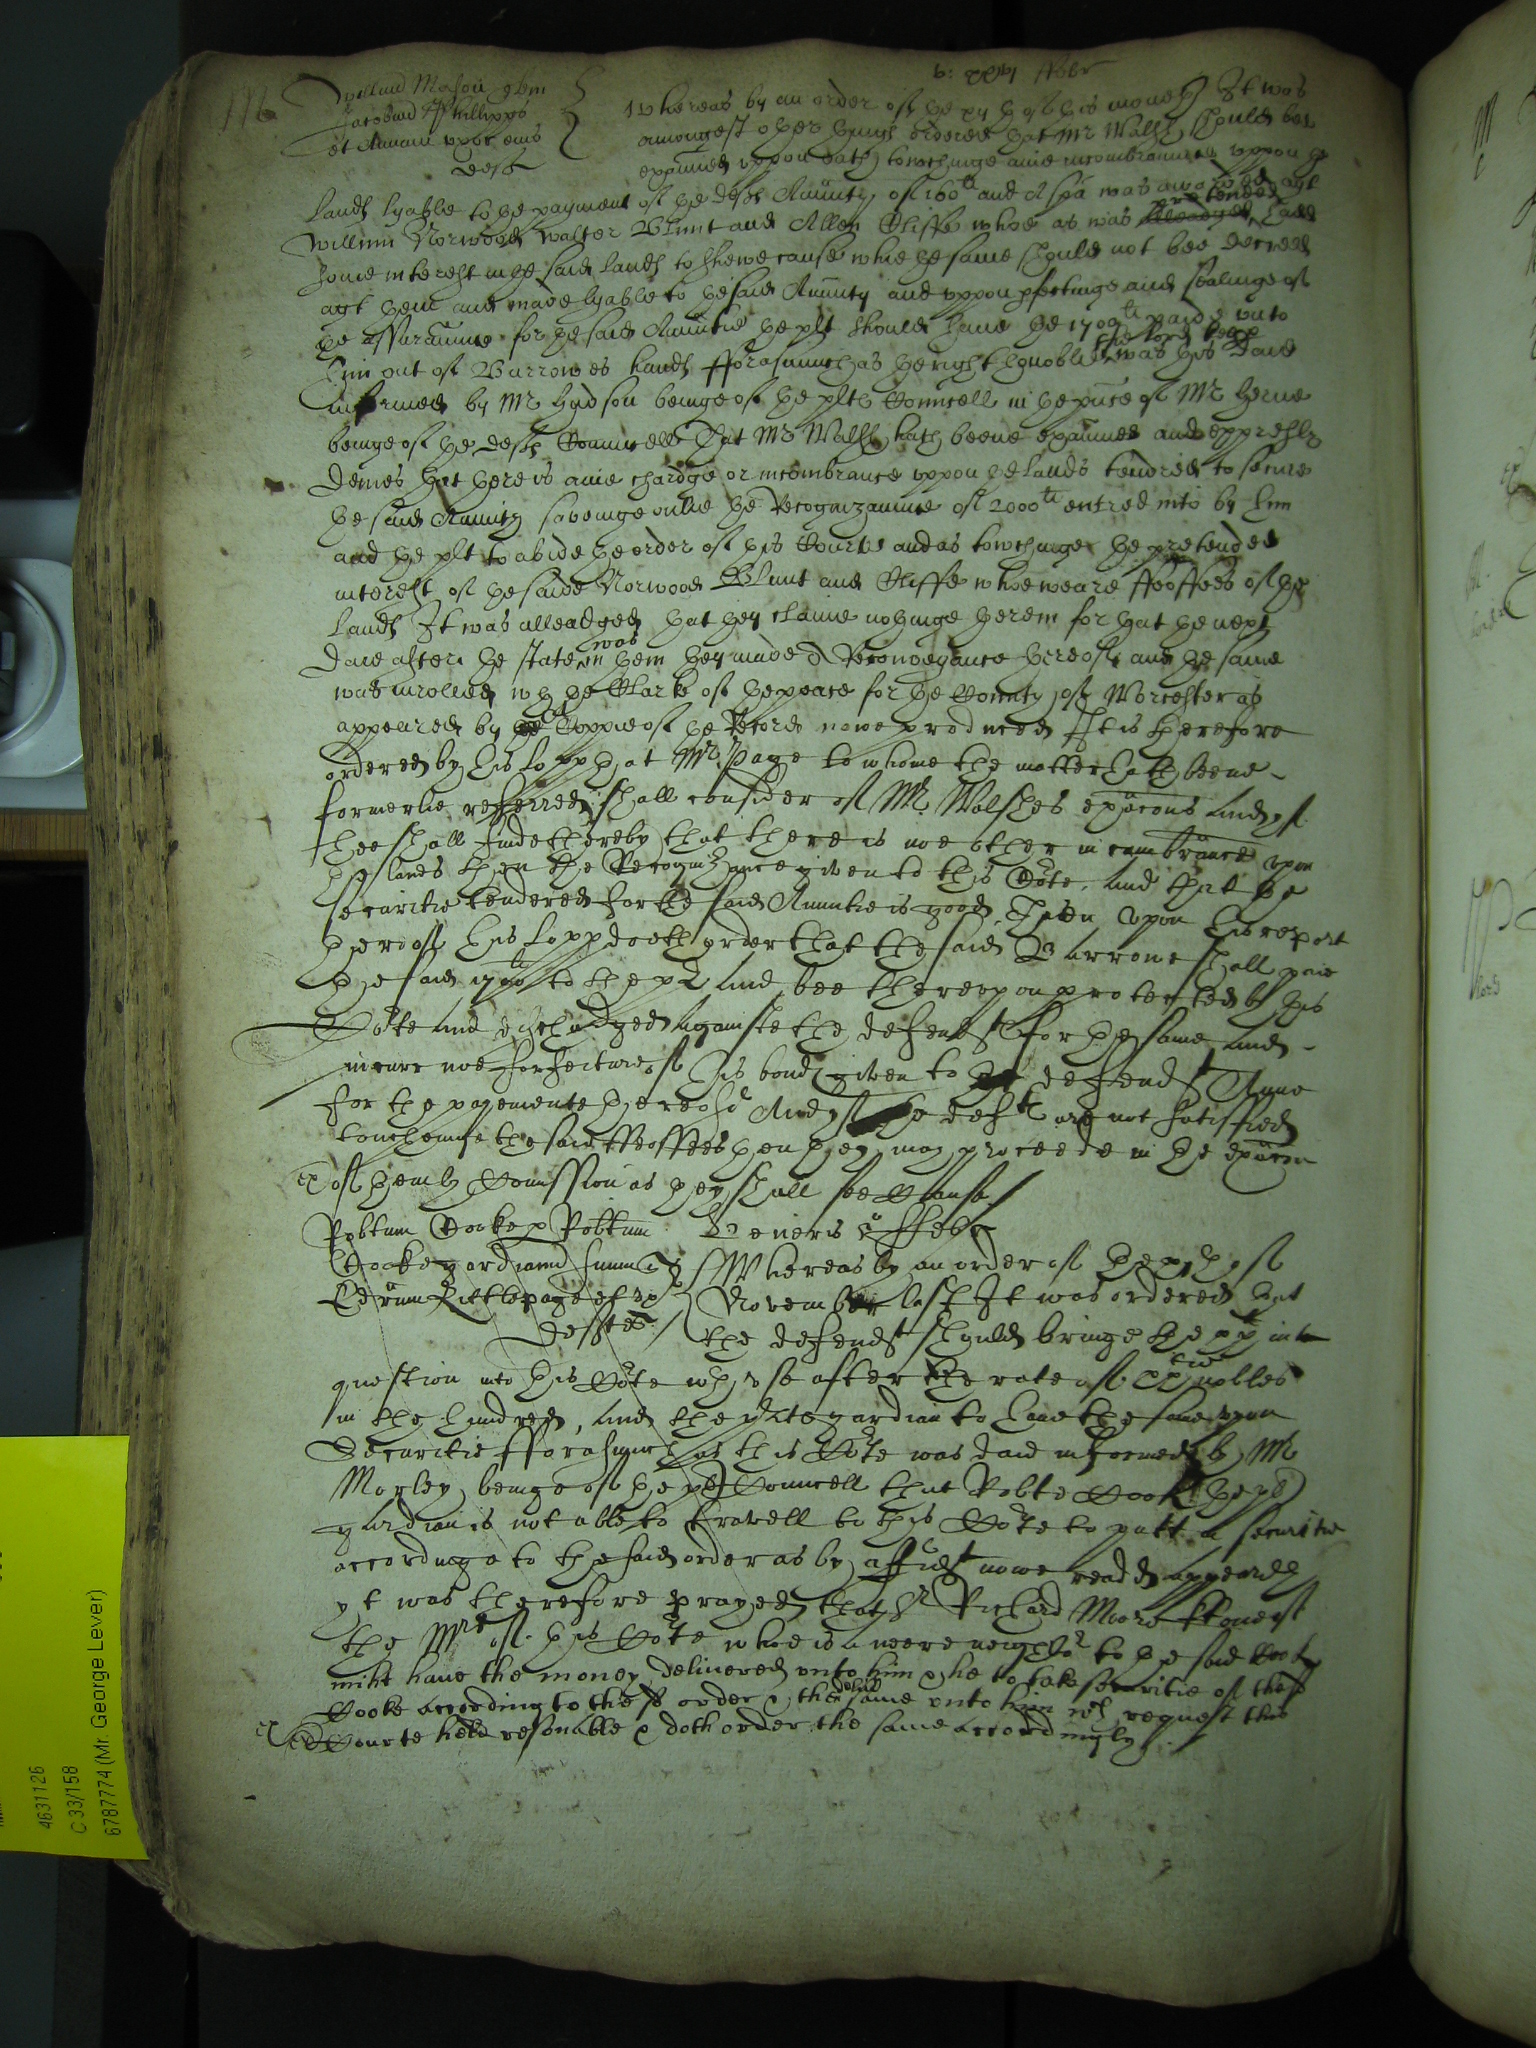 116
Willmus Mason quer
Jacobum Phillipps
et Annam uxor eius
deft
Whereas by an order of the xijth of this moneth It was
amongest other things ordered that Mr Walsh should bee
exãmined uppon oath towchinge anie incombrances uppon the
lands lyable to the payment of the defts Annuity of 160li and A spa was awarded agt
Willmm Norwood Walter Blunt and Allen Cliffe whoe as was pretended had
some interest in the said lands to shewe cause whie the same should not bee decreed
agt them and made lyable to the said Annuity and uppon pfectinge and sealinge of
the assurãunce for the said Annuitie the plt should have the 1700li paide unto
him out of Burrowes hands fforasmuch as the right honoble the lord keeper was this daie
informed by Mr Hudson beinge of the plts Councell in the pñce of Mr Herne
beinge of the defts Councell That Mr Walsh hath beene exãmined and expressly
denies that there is anie chardge or incombrance uppon the lands tendred to secure
the said Annuity saveinge onlie the Recognizaunce of 2000li entred into by him
and the plt to abide the order of this Courte and as towchinge the pretended
interest of the saide Norwood Blunt and Cliffe whoe weare ffeoffees of the
lands It was alleadged that they claime nothinge therein for that the next
daie after the state was in them they made A Reconveyance thereof and the same
was inrolled wth the Clarke of the peace for the County of Worcester as
appeared by a Coppie of the Record nowe produced It is therefore
ordered by his lopp that Mr Page to whome the matter hath beene
formerlie referred shall consider of Mr Walshes exãcons And yf
hee shall finde thereby that there is noe other incumbrance upon
the lands then the Recognizance given to this Cõte And that the
securitie tendered for the said Annuitie is good Then upon his report
thereof his lopp doeth order that the said Burrowe shall paie
the said 1700li to the plt And bee thereupon protected by this
Cõte and dischardged againste the defendts for the same And
incurr noe forfeiture of his bond given to the defendt Anne
for the payemente thereof And yf the defts are not satisfied
toucheinge the said ffeoffees then they may proceede in the exãcon
of them by Comission as they shall see Cause
Robtum Cooke p Robtum
Cooke gardianu suum quer
Edrum Littlepage et ux
deftes
Veneris ffebr
Whereas by an order of the xth of
November last It was ordered that
the defendt should bringe the in
question into this Cõte wth use after the rate of tie nobles
in the hundred, And the plts gardian to have the same upon
Securitie fforasmuch as this Cõte was daie informed by Mr
Morley beinge of the plts Councell that Robte Cooke the plts
gardian is not able to travell to this Cõte to putt in securitie
accordinge to the said order as by affidt nowe readd appeareth
yt was therefore prayed that Sr Richard Moore kt one of
the Mrs of this Cõte whoe is a neere neighbor to the said Robt
miht have the money delivered unto him & he to take securitie of the sd
Cooke according to the sd order & the same unto him wch request this
Courte held resonable & doth order the same accordingly
4631126
C 33/158
6787774 (Mr. George Lever)